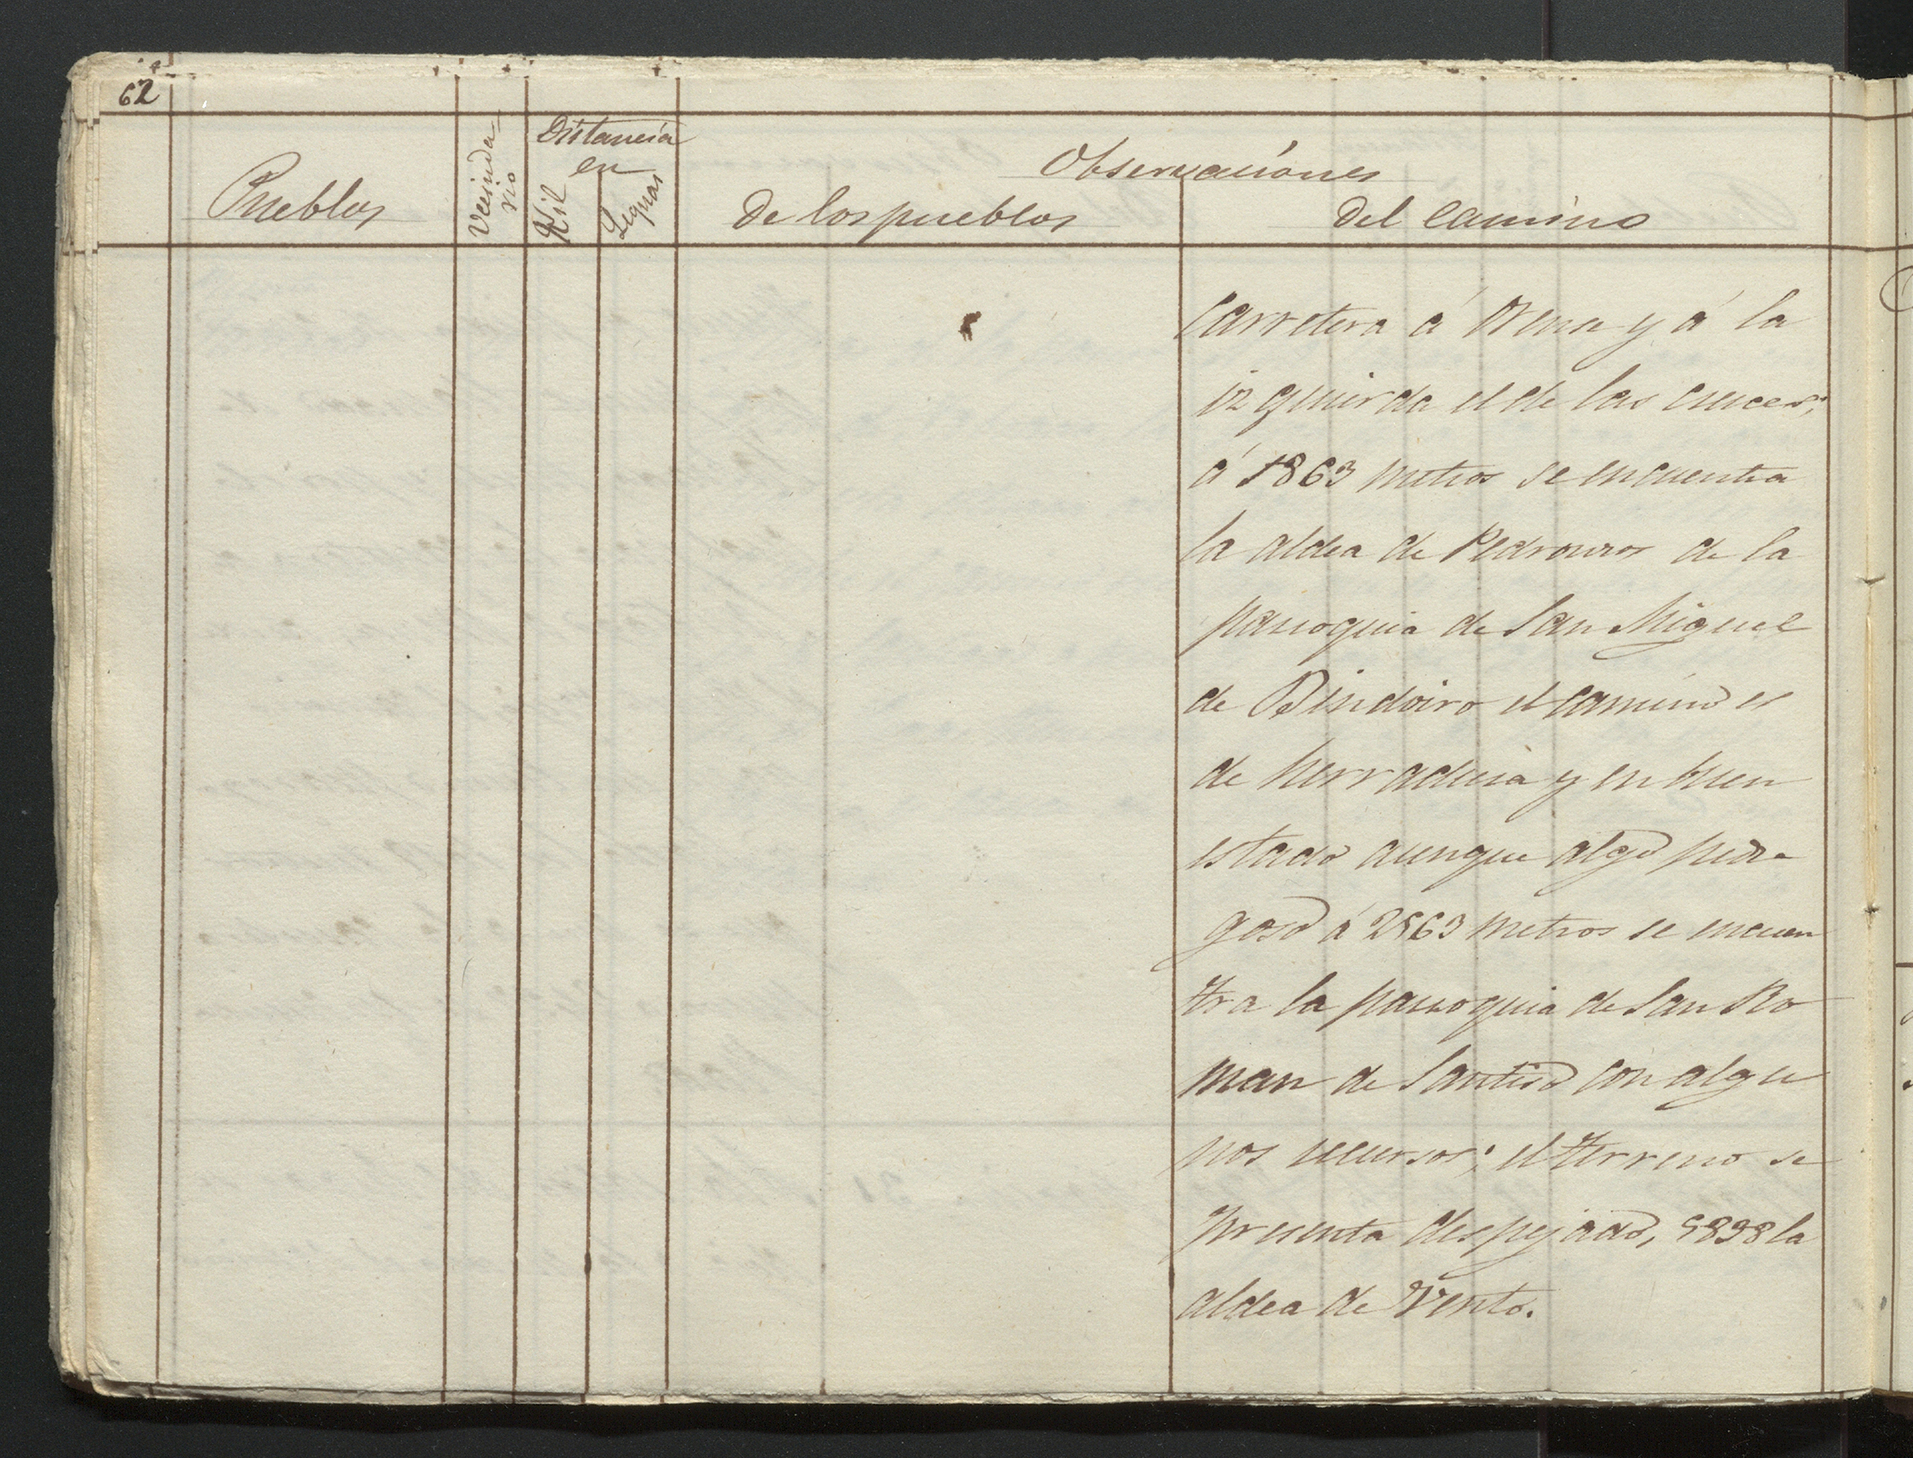 62
Pueblos
Vecindario
Distancia
en
Kil
Leguas
Observaciones
De los pueblos
Del camino
Carretera á Orense y á la
izquierda el de las cruces;
á 1863 metros se encuentra
la aldea de Pedrouzos de la
parroquia de San Miguel
de Bindoiro el camino es
de herradura y en buen
estado aunque algo pedre
goso á 2563 metros se encuen
tra la parroquia de San Ro
man de Santiso con algu
nos recursos; el terreno se
presenta despejado, 5898 la
aldea de Vento.